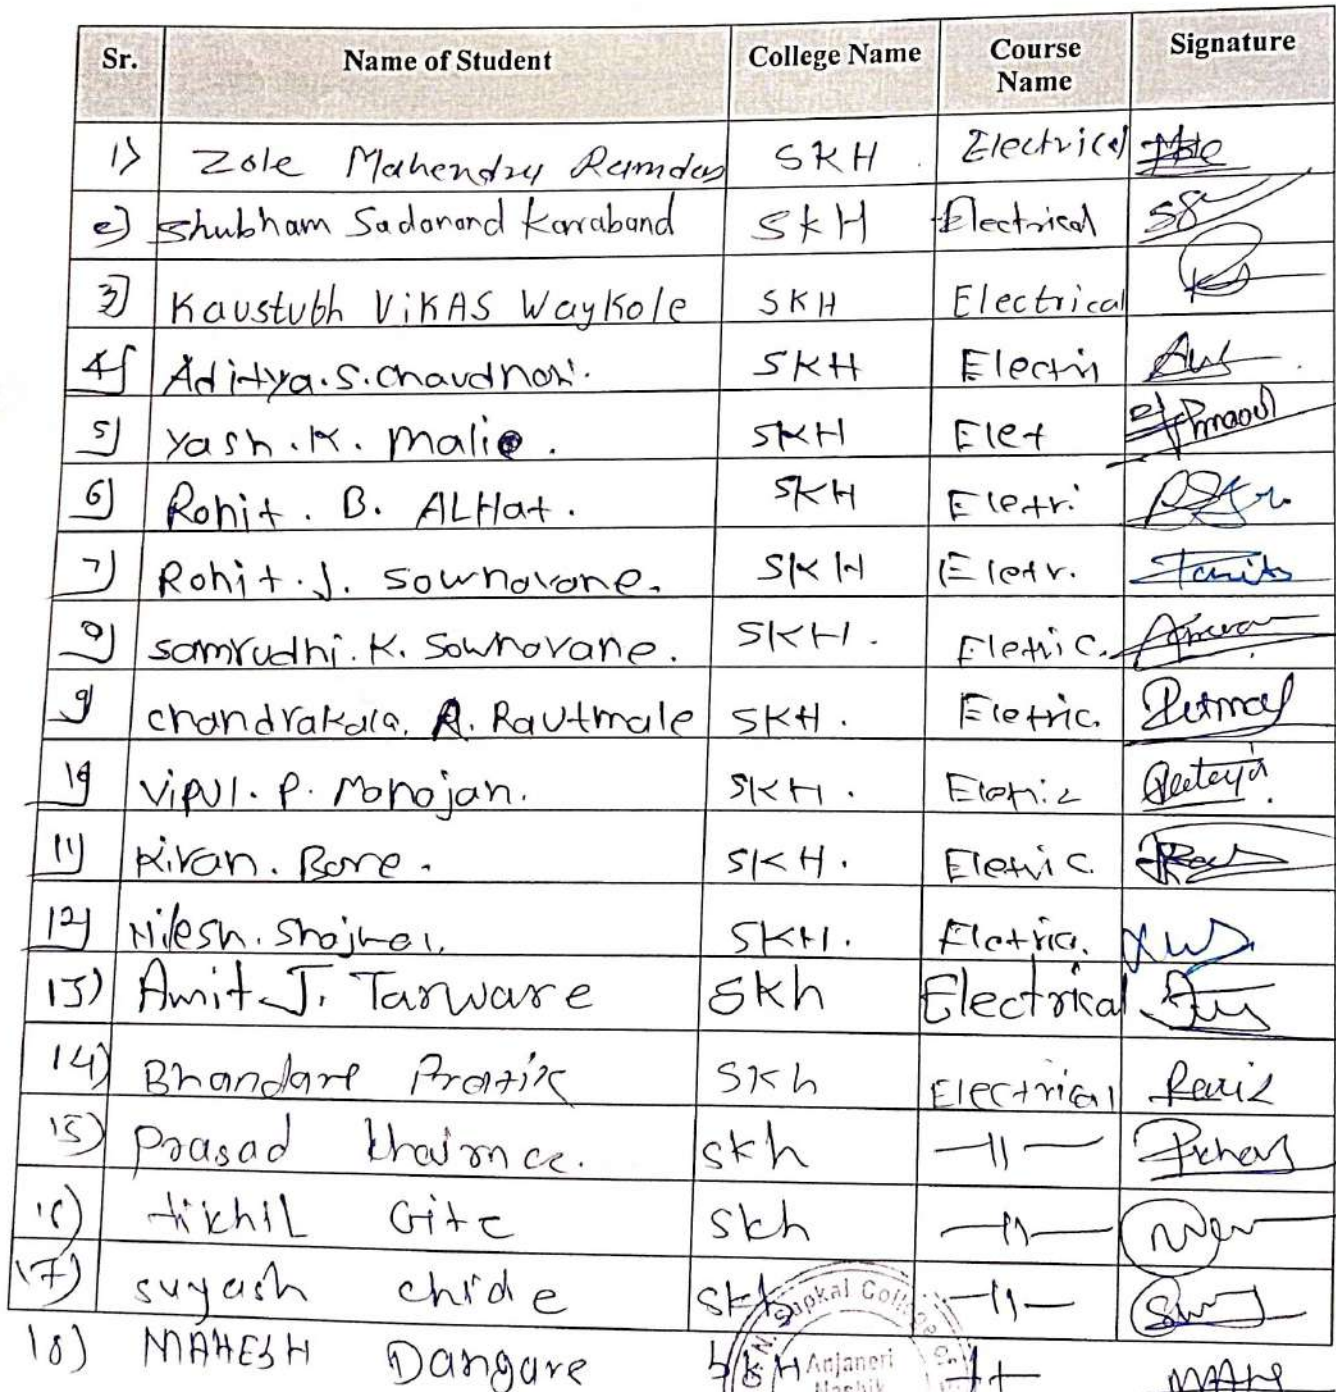 Sr. Name of Student College Name Course Name Signature
1) Zole Mahendra Ramdas SKH Electrical
2) Shubham Sadanand Karraband SKH Electrical SS
3) Kaustubh ViKAS Waykole SKH Electrical
4) Aditya.S.Chaudhari. SKH Electri
5) Yash.K. Mali. SKH Elet
6) Rohit. B. ALHat. SKH Eletr.
7) Rohit.J. Sownavane. SKH Eletr.
8) Samrudhi.K. Sownavane. SKH. Eletric.
9) Chandrakala. R. Rautmale SKH. Eletric.
10) Vipul.P. Mahajan. SKH.
11) Kiran. Bore. SKH. Eletric.
12) Nilesh. SKH. Eletric.
13) Amit J. Tarware Skh Electrical
14) Bhandare Pratik Skh Electrical
15) Prasad Skh —11—
16) Nikhil Gite Skh —11—
17) Suyash Chide Skh —11—
18) MAHESH Dangare SKH
N. Sapkal College
Anjaneri
Nashik